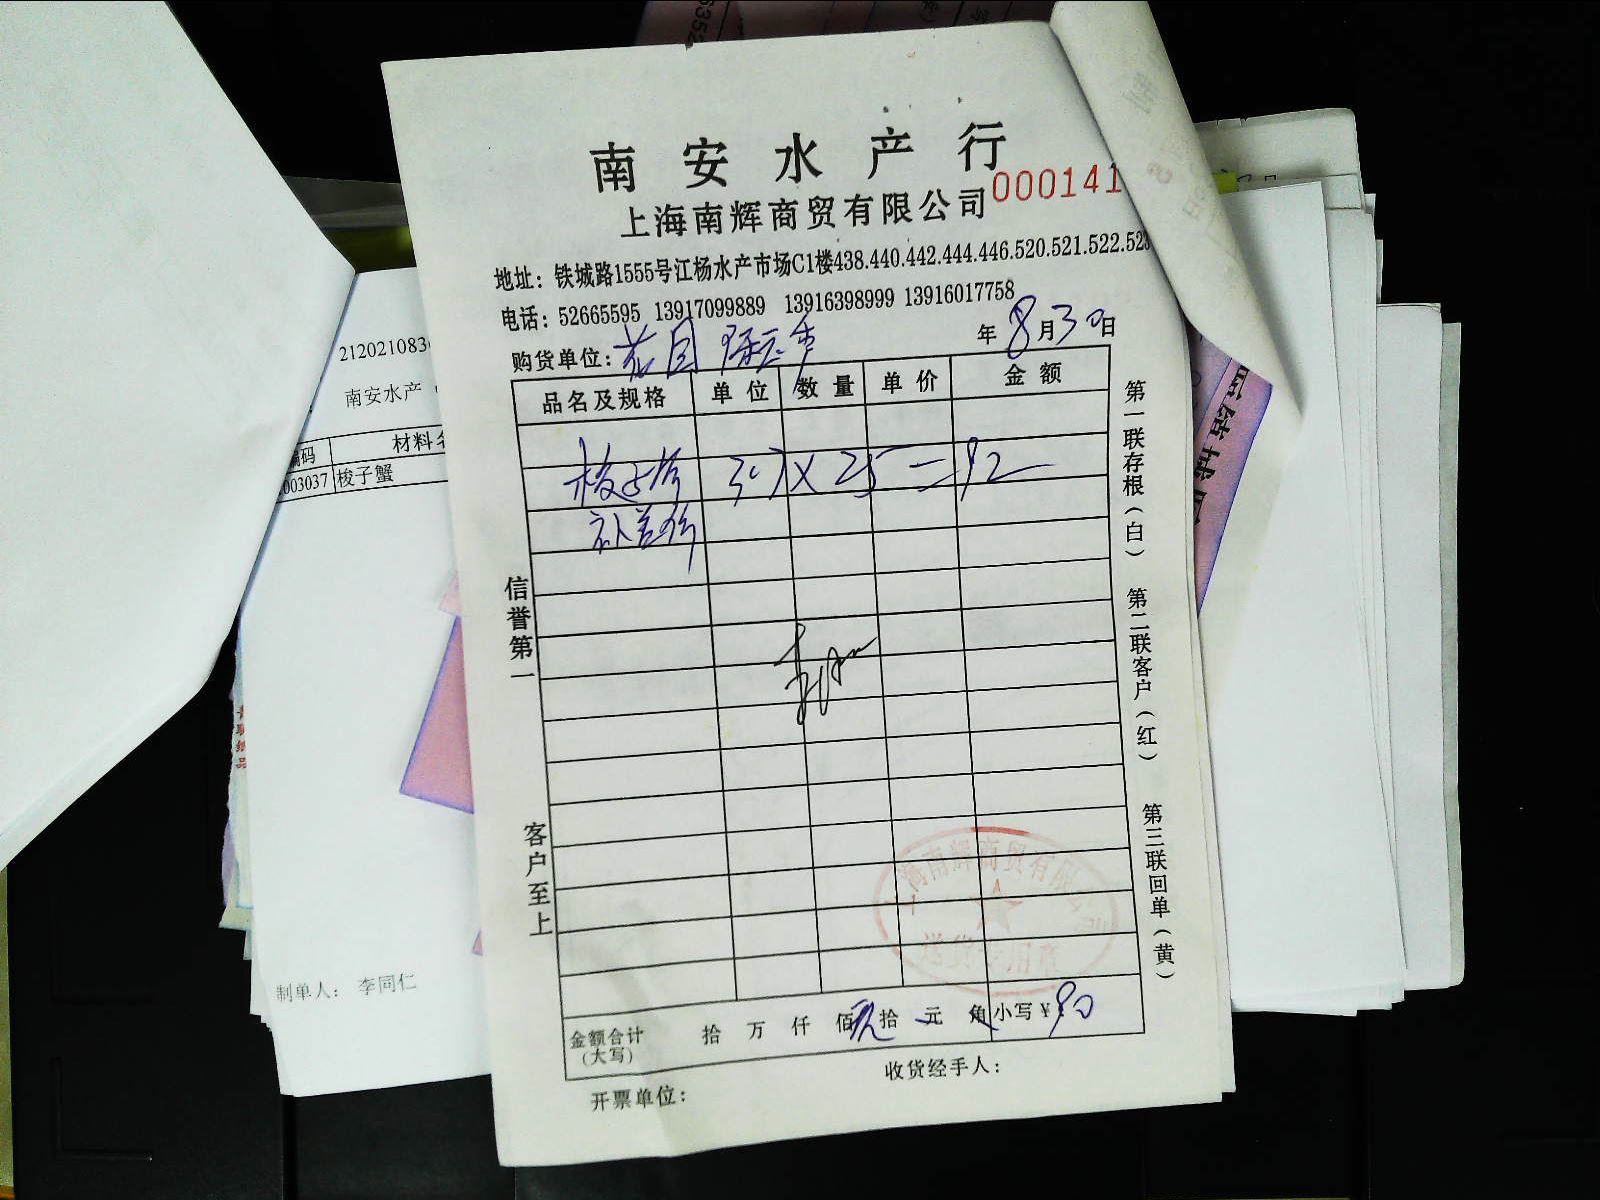 南安水产行
上海南辉商贸有限公司 000141
地址：铁城路1555号江杨水产市场C1楼438.440.442.444.446.520.521.522.523
电话：52665595 13917099889 13916398999 13916017758
年8月30日
购货单位：
品名及规格 单位 数量 单价 金额
梭子蟹 3.7×25=92
补差价
信誉第一
客户至上
第一联存根（白） 第二联客户（红） 第三联回单（黄）
海南辉商贸有限公司
送货专用章
金额合计（大写） 拾 万 仟 佰 玖拾 元 角 小写¥90
开票单位：
收货经手人：
212021083
南安水产
编码 材料名
003037 梭子蟹
制单人： 李同仁